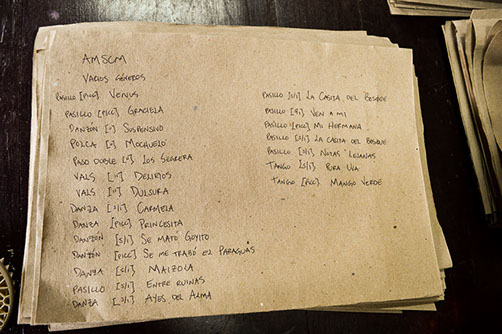 AMSCM
VARIOS GÉNEROS
PASILLO [PICC] VENUS
PASILLO [PICC] GRACIELA
DANZÓN ["] SUSPENSIVO
POLCA ["] MOCHUELO
PASO DOBLE ["] LOS
VALS ["] DELIRIOS
VALS ["] DULSURA
DANZA [S/I] CARMELA
DANZA [PICC] PRINCESITA
DANZÓN [S/I] SE MATÓ GOYITO
DANZÓN [PICC] SE ME TRABÓ EL PARAGUAS
DANZA [S/I] MAIZOLA
PASILLO [S/I] ENTRE RUINAS
DANZA [S/I] AYES DEL ALMA
PASILLO [S/I] LA CASITA DEL BOSQUE
PASILLO [S/I] VEN A MI
PASILLO [PICC] MI HERMANA
PASILLO [S/I] LA CASITA DEL BOSQUE
PASILLO [S/I] NOTAS LEJANAS
TANGO [S/I]
TANGO [PICC] MANGO VERDE